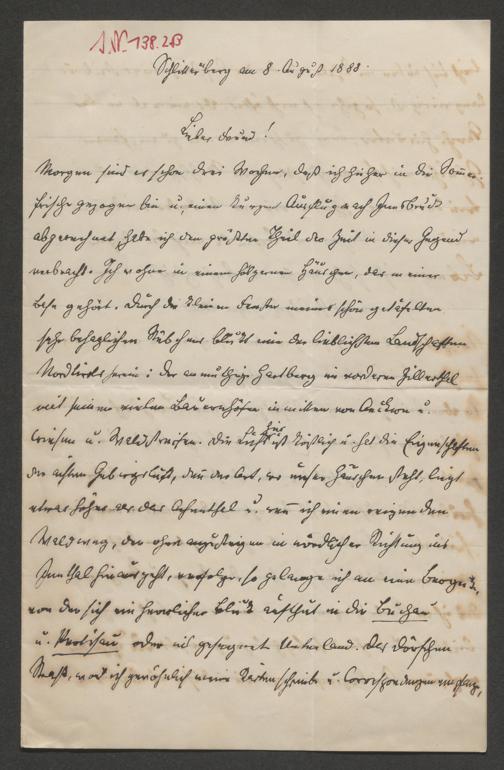 I.N. 138.213
Schlitterberg am 8. August 1888.
Lieber Freund!
Morgen sind es schon drei Wochen, daß ich hieher in die Sommer-
frische gezogen bin u. einen kurzen Ausflug nach Innsbruck
abgerechnet, habe ich den größten Theil der Zeit in dieser Gegend
verbracht. Ich wohne in einem hölzernen Häuschen, das zu einer
gehört. Durch die kleinen Fenster meines schön getäfelten
sehr behaglichen Stübchens blickt eine der lieblichsten Landschaften
Nordtirols herein: der anmuthige Hartberg im vorderen Zillerthal
mit seinen vielen Bauernhöfen inmitten von Aeckern u.
Wiesen u. Waldstreifen. Die Luft hier ist köstlich u. hat die Eigenschaften
der ächten Gebirgsluft, denn der Ort, wo unser Häuschen steht, liegt
etwas höher als das Achenthal u. wenn ich einen
Waldweg, der ohne anzusteigen in nördlicher Richtung ins
Innthal hinausgeht, verfolge, so gelange ich an eine
von der sich ein herrlicher Blick aufthut in die Buchau
u. Pertisau oder ins gesegnete Unterland. Das Dörfchen
Straß, wo ich gewöhnlich meine Karten schreibe u. Correspondenzen empfange,